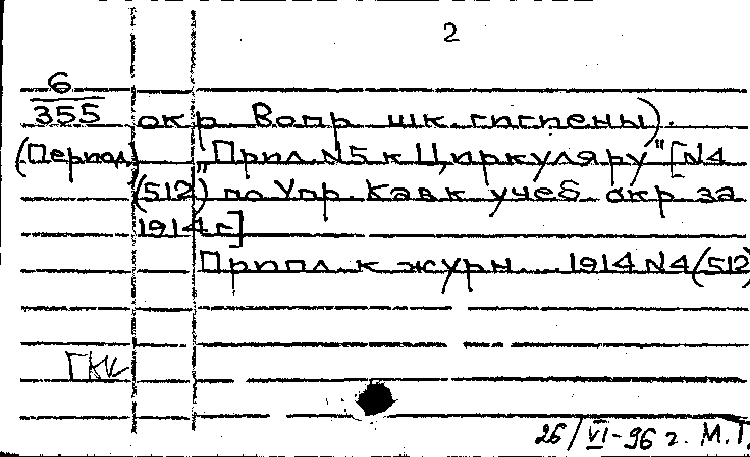 2
6/355 окр. Вопр. шк. гигиены).
(Период) "Прил. N5 к Циркуляру" [N4
(512) по Упр. Кавк. учеб. окр. за
1914 г.]
Прил. к журн. ... 1914 N4 (512)
ГКК
26/VI-96 г. М.Т.